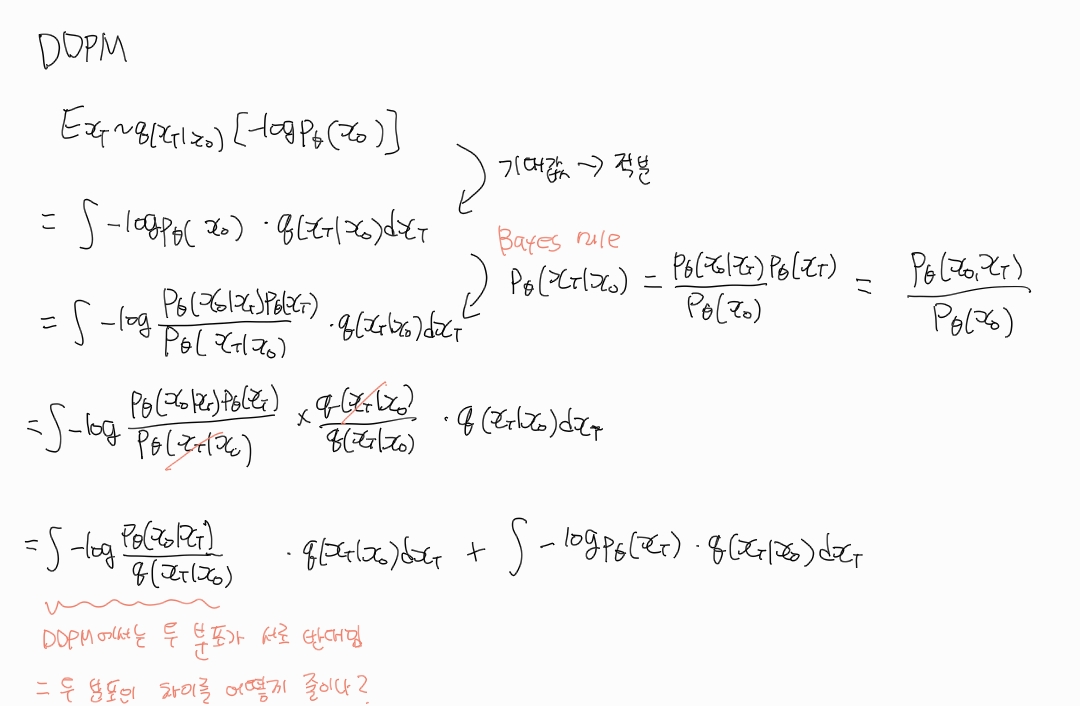 DDPM
E x_T~q(x_T|x_0) [-log P_θ(x_0)]
기대값 → 적분
= ∫ -log P_θ(x_0) · q(x_T|x_0)dx_T
Bayes rule
P_θ(x_T|x_0) = P_θ(x_0|x_T)P_θ(x_T) / P_θ(x_0) = P_θ(x_0,x_T) / P_θ(x_0)
= ∫ -log P_θ(x_0|x_T)P_θ(x_T) / P_θ(x_T|x_0) · q(x_T|x_0)dx_T
= ∫ -log P_θ(x_0|x_T)P_θ(x_T) / P_θ(x_T|x_0) × q(x_T|x_0) / q(x_T|x_0) · q(x_T|x_0)dx_T
= ∫ -log P_θ(x_0|x_T) / q(x_T|x_0) · q(x_T|x_0)dx_T + ∫ -log P_θ(x_T) · q(x_T|x_0)dx_T
DDPM에서는 두 분포가 서로 반대임
= 두 분포의 차이를 어떻게 줄이나?